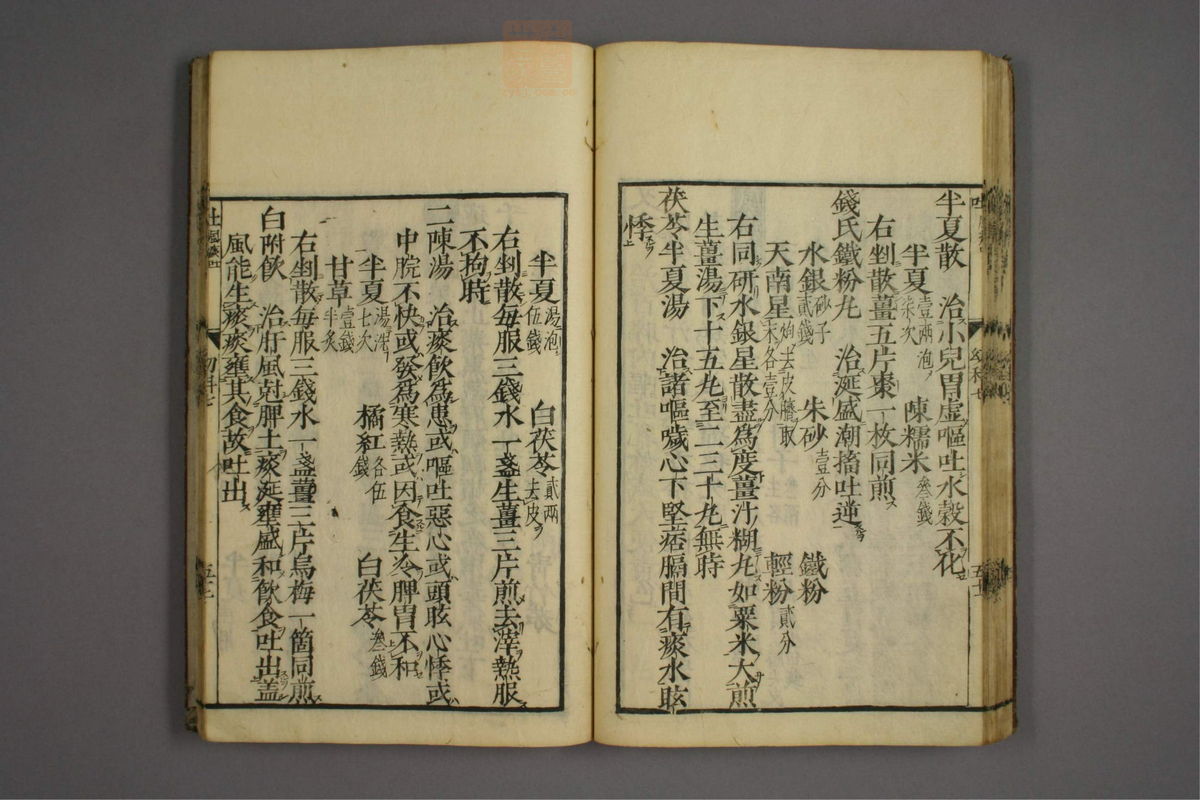 半夏散　治小兒胃虛嘔吐水穀不化
半夏壹兩泡柒次　陳糯米叁錢
右剉散薑五片棗一枚同煎
錢氏鐵粉丸　治涎盛潮搐吐逆
水銀砂子貳錢　朱砂壹分　鐵粉
天南星炮去皮臍取末各壹分　輕粉貳分
右同研水銀星散盡爲度薑汁糊丸如粟米大煎
生薑湯下十五丸至二三十丸無時
茯苓半夏湯　治諸嘔噦心下堅痞膈間有痰水眩
悸
半夏湯泡伍錢　白茯苓貳兩去皮
右剉散每服三錢水一盞生薑三片煎去滓熱服
不拘時
二陳湯　治痰飮爲患或嘔吐惡心或頭眩心悸或
中脘不快或發爲寒熱或因食生冷脾胃不和
半夏湯洗七次　橘紅各伍錢　白茯苓叁錢
甘草壹錢半炙
右剉散每服三錢水一盞薑三片烏梅一箇同煎
白附飮　治肝風尅脾土痰涎壅盛和飮食吐出蓋
風能生痰痰壅其食故吐出